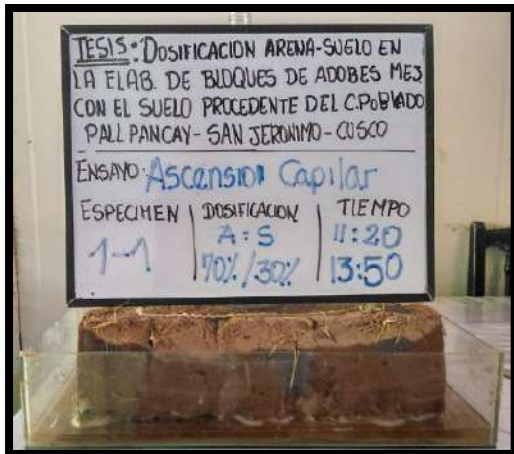 TESIS: DOSIFICACION ARENA-SUELO EN
LA ELAB. DE BLOQUES DE ADOBES MEJ
CON EL SUELO PROCEDENTE DEL C.POBLADO
PALLPANCAY - SAN JERONIMO - CUSCO
ENSAYO: Ascension Capilar
ESPECIMEN DOSIFICACION TIEMPO
A:S 11:20
1-1 70%/30% 13:50